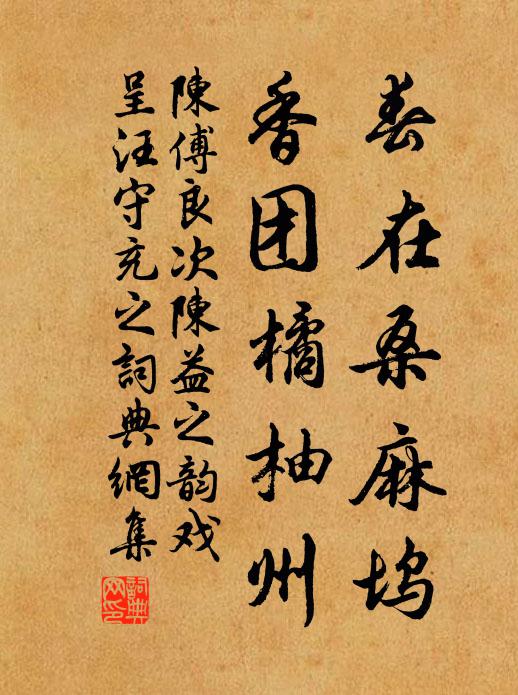 春在桑麻坞
香团橘柚州
陳傅良次陳益之韵戏
呈汪守充之詞典網集
詞典网印